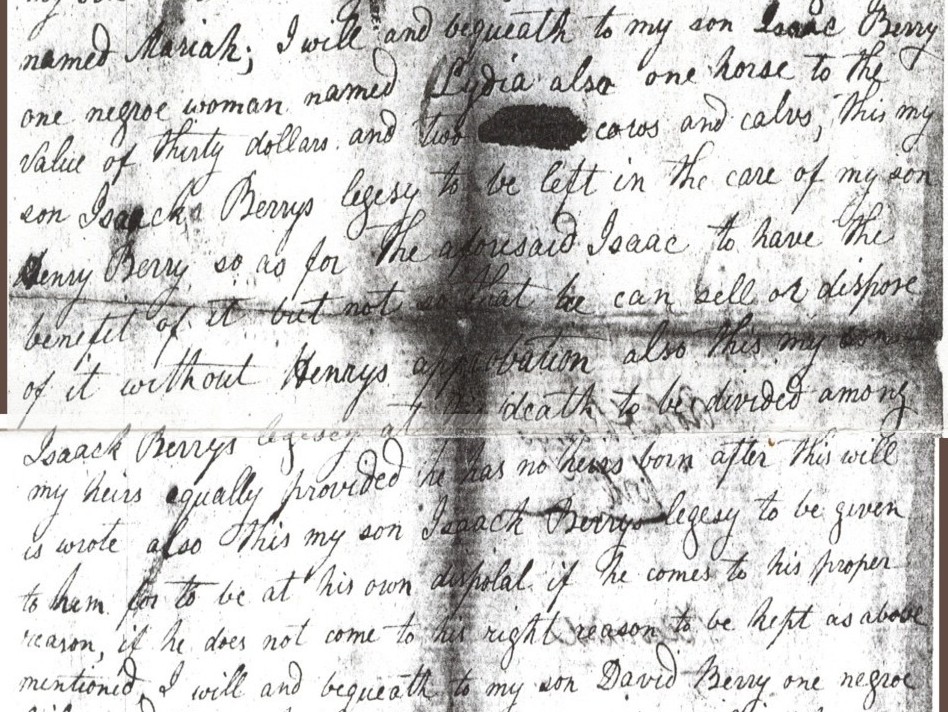 named Mariah; I will and bequeath to my son Isaac Berry
one negroe woman named Lydia also one horse to the
value of thirty dollars and two cows and calvs, this my
son Isaack Berrys legesy to be left in the care of my son
Henry Berry so as for the aforesaid Isaac to have the
benefit of it but not so that he can sell or dispose
of it without Henrys approbation also this my son
Isaack Berrys legesy at his death to be divided among
my heirs equally provided he has no heirs born after this will
is wrote also this my son Isaack Berrys legesy to be given
to ham for to be at his own dispolal if he comes to his proper
reason, if he does not come to his right reason to be kept as above
mentioned, I will and bequeath to my son David Berry one negroe